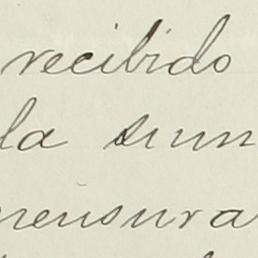 recibido
la sum
mensura